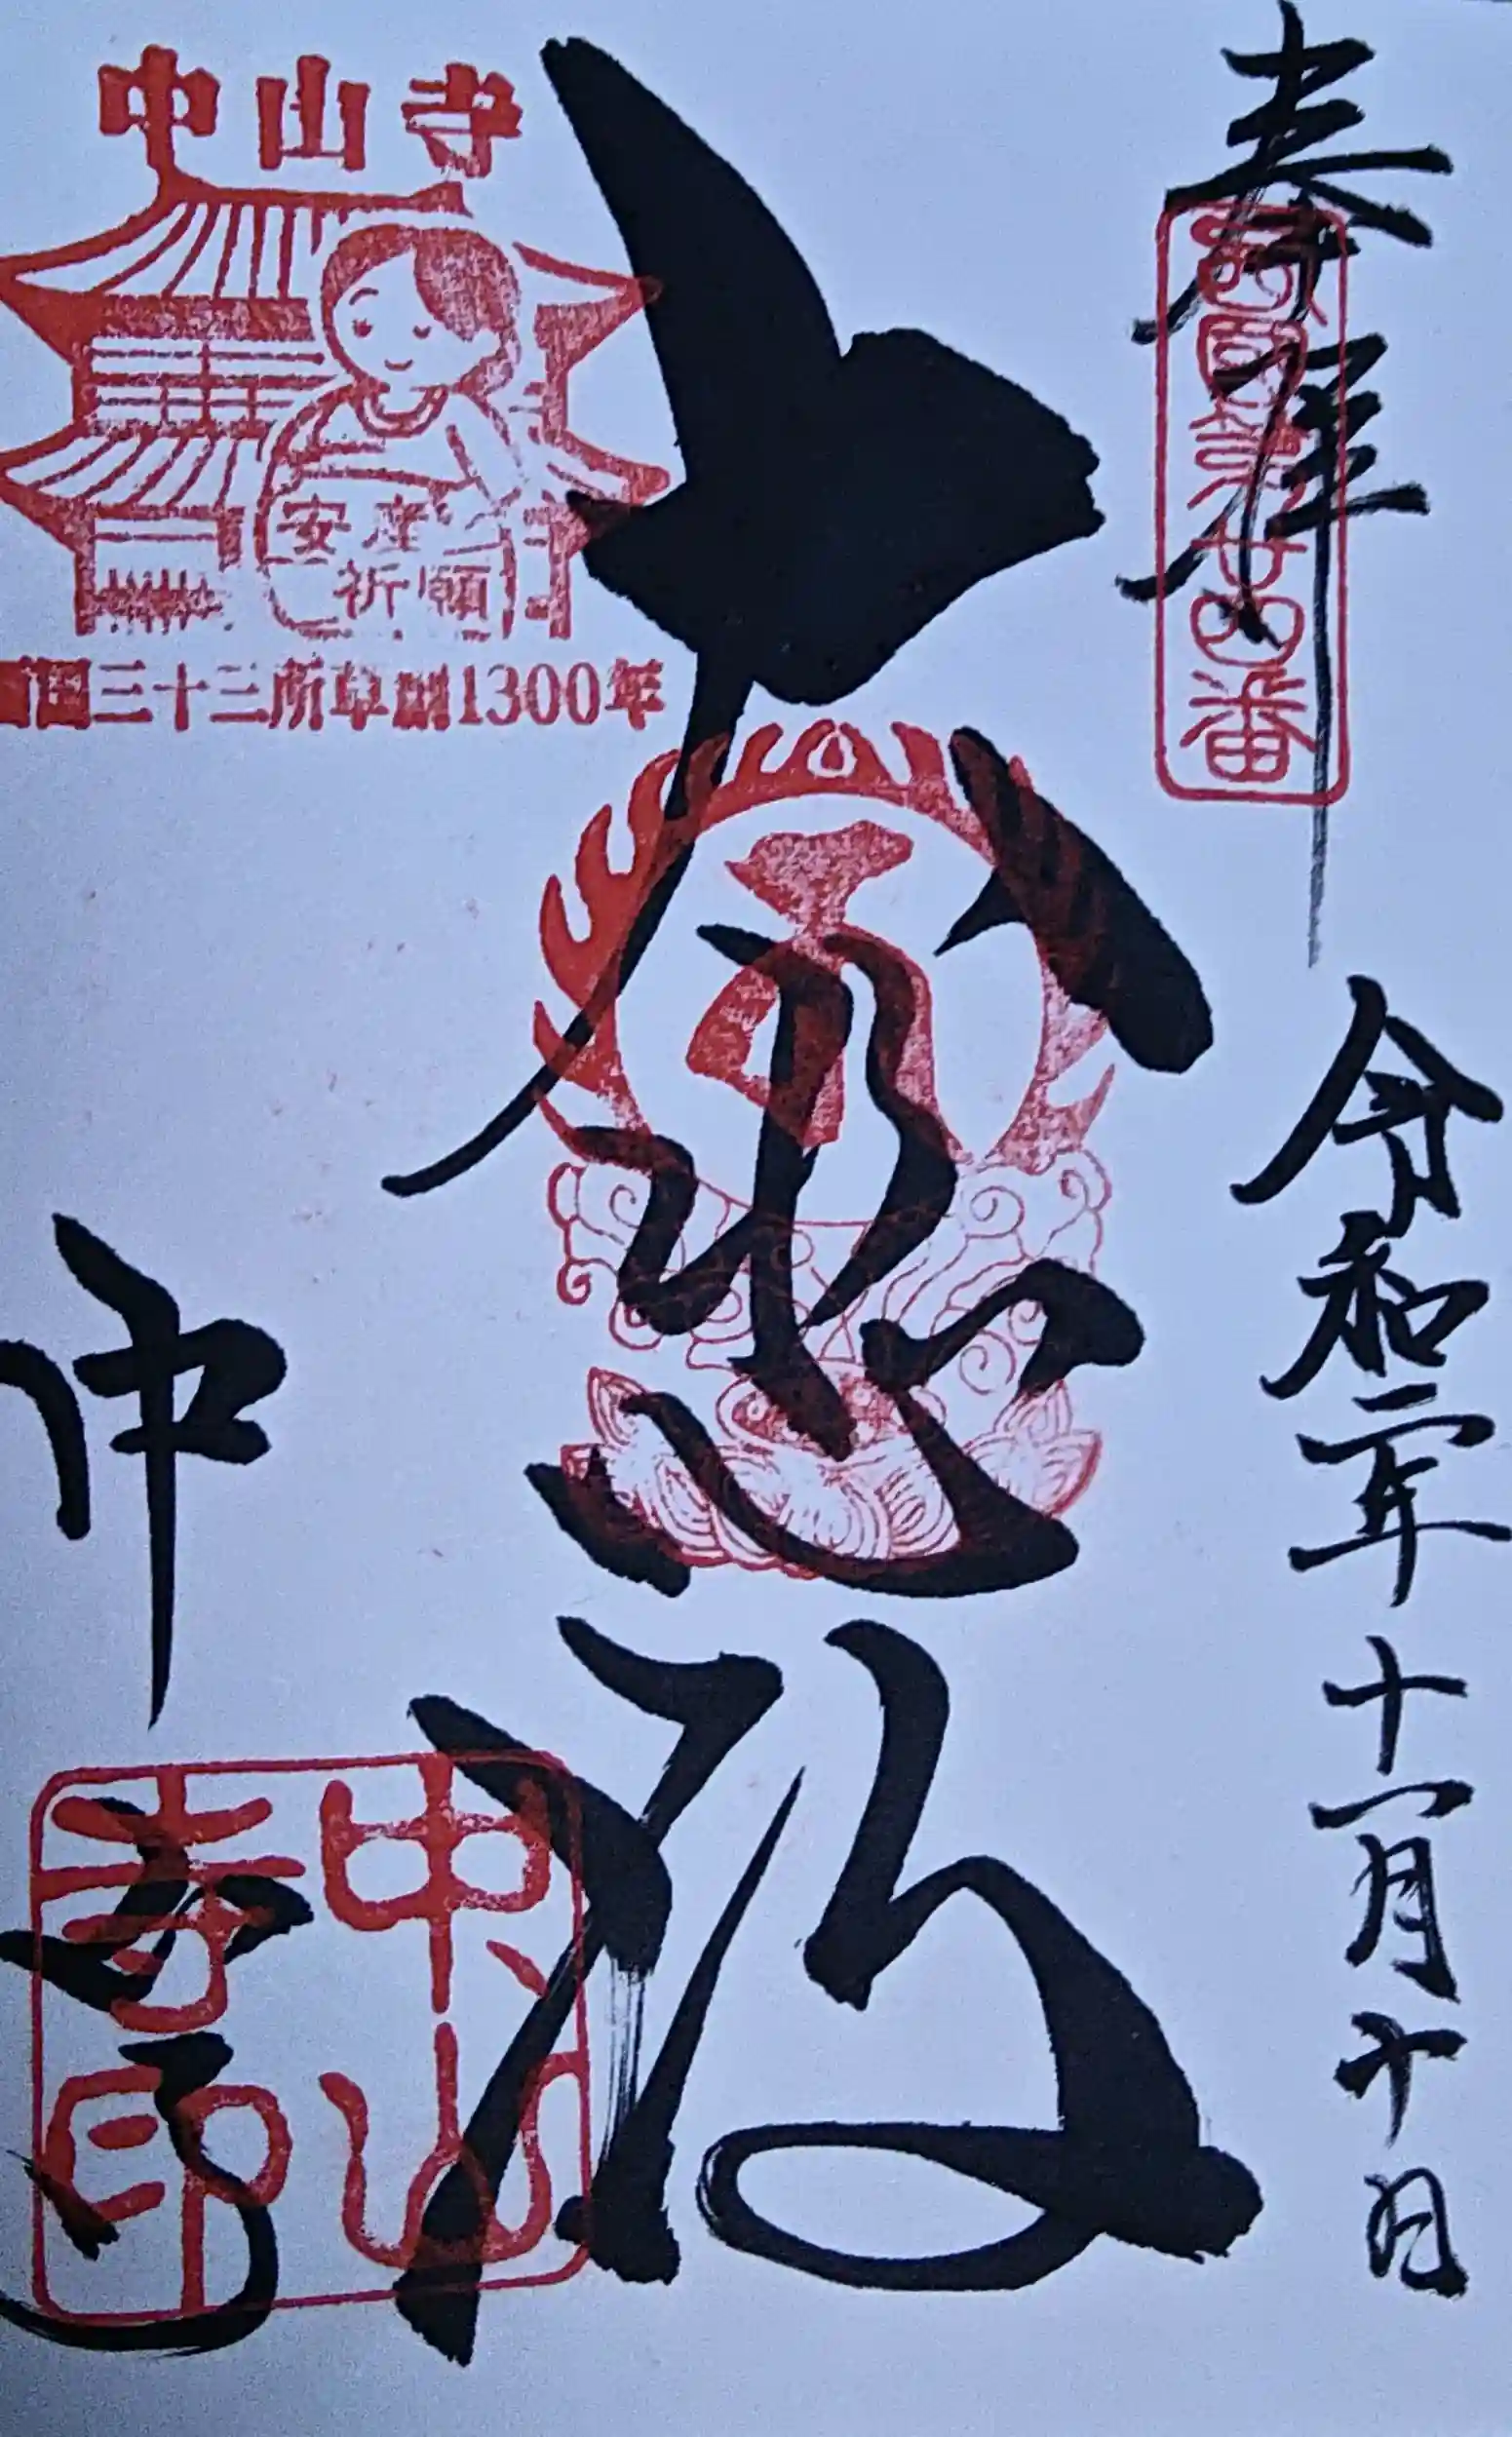 奉拝
西国第廿四番
令和二年十一月十日
大悲殿
中山寺
安産
祈願
西国三十三所草創1300年
中山寺
中山寺印